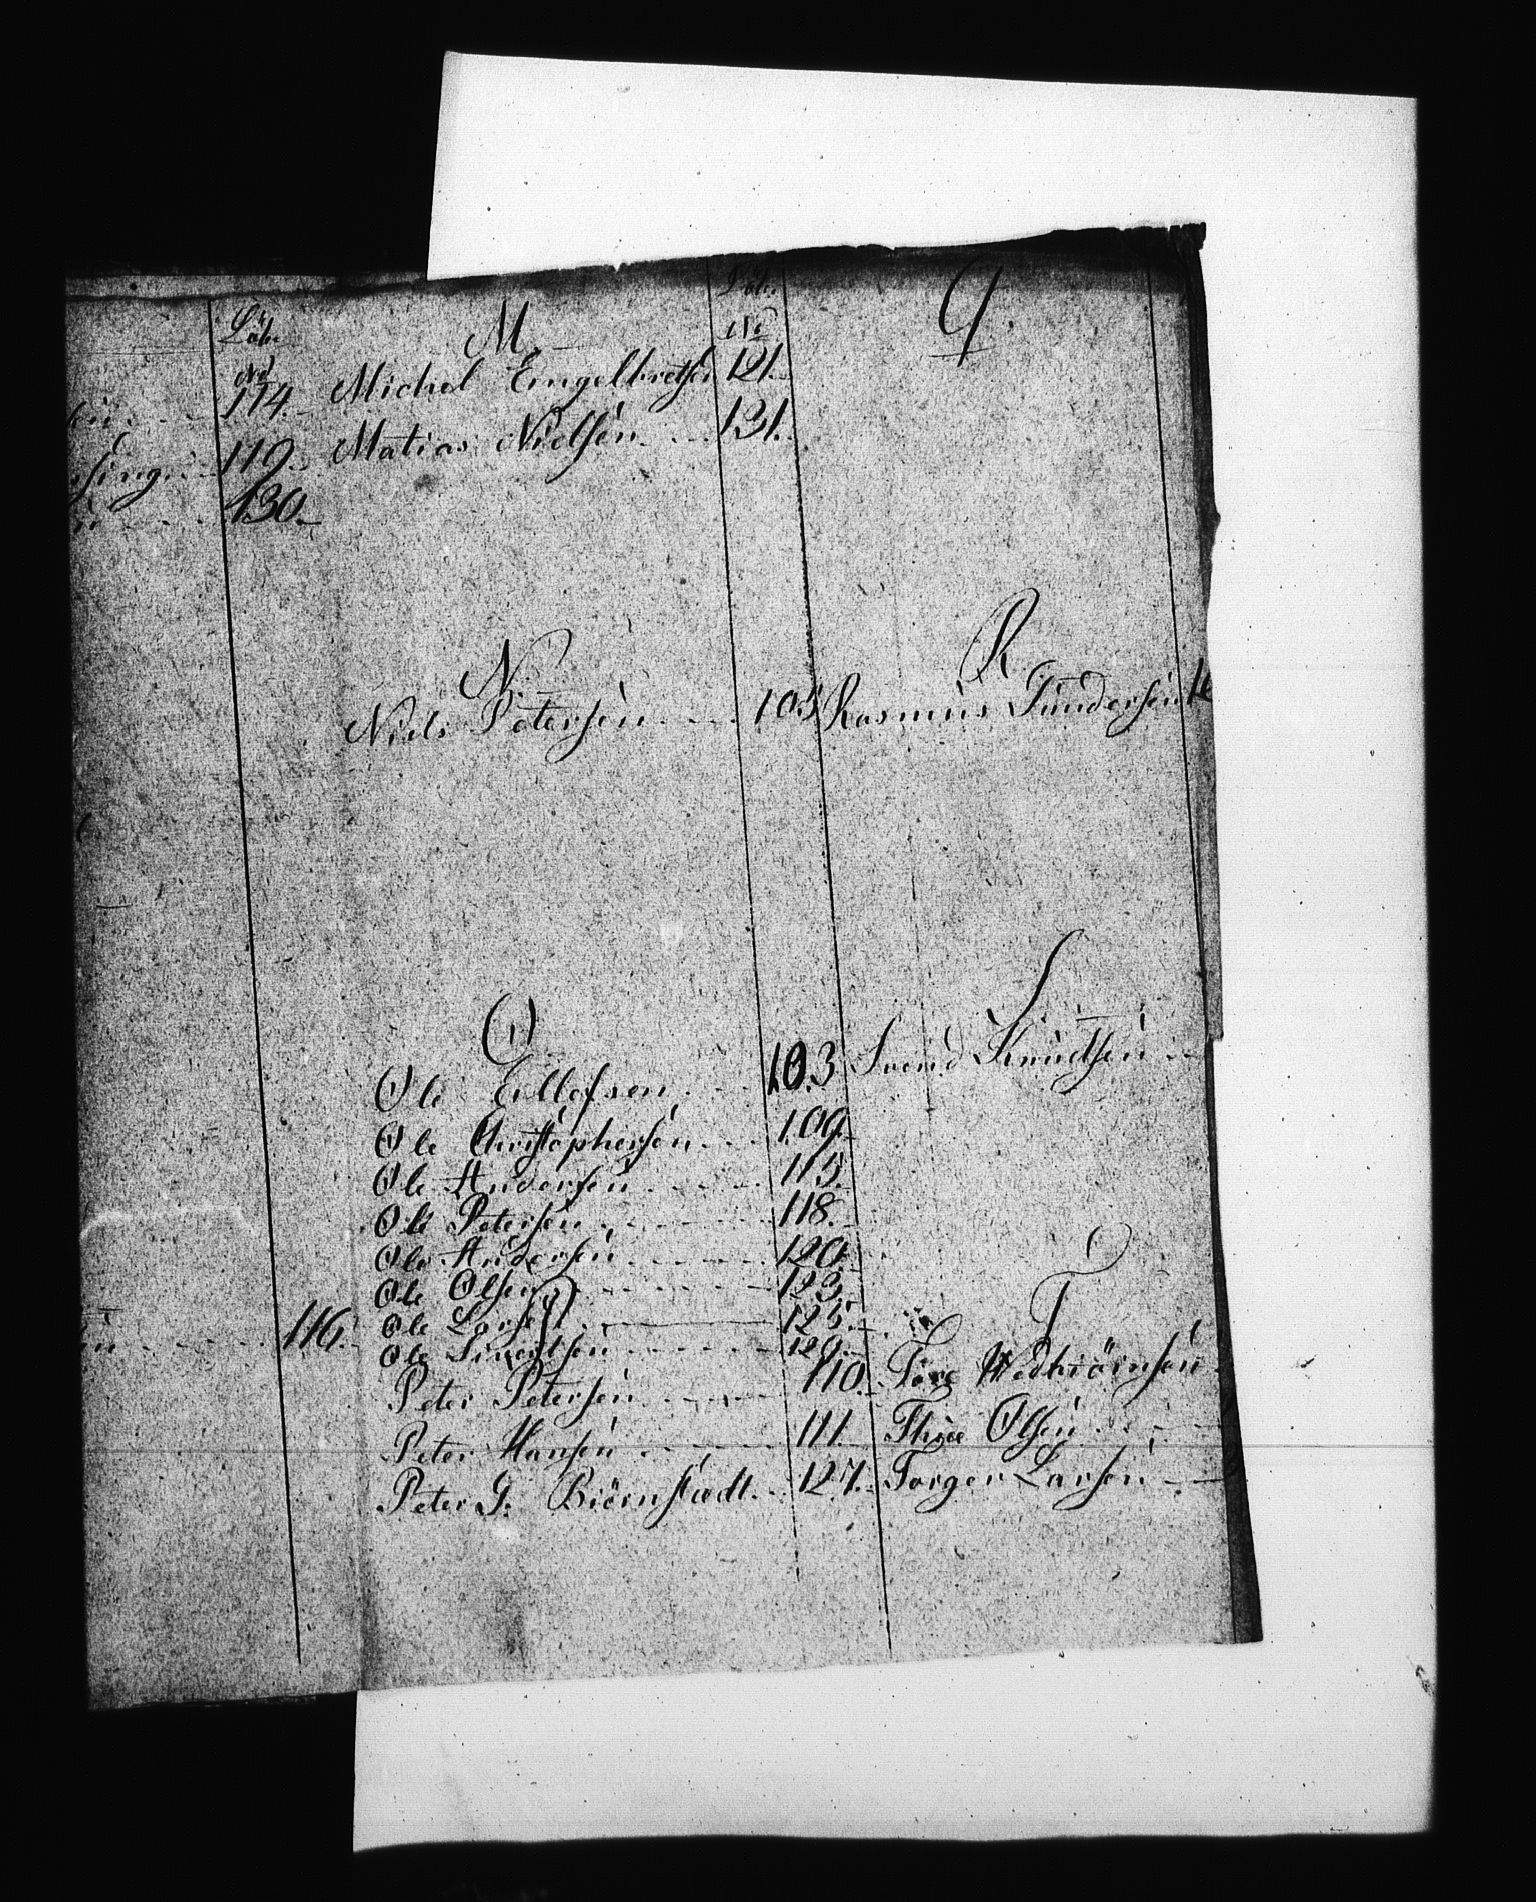 Löbe
No
114.
119.
130.
116.
M.
Löbe
No
Michel Engelbretsen 121.
Matias Nielsen 131.
N.
Niels Petersen 105
O
Ole Ellefsen 103
Ole Christophersen 109.
Ole Andersen 115.
Ole Petersen 118.
Ole Andersen 120.
Ole Olsen 123.
Ole Larsen 125.
Ole Sivertsen 129.
P
Peter Petersen 110.
Peter Hansen 111.
Peter G. Biörnstadt. 127.
Q.
R.
Rasmus Gundersen
S.
Svend Knudsen
T
Tore
Olsen
Torger Larsen